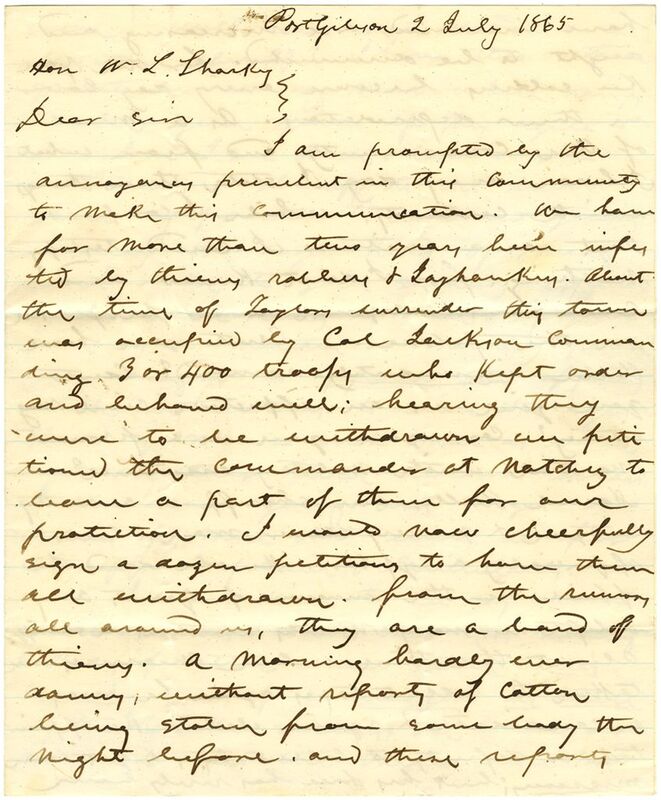 Port Gibson 2 July 1865
Hon W. L. Sharkey
Dear Sir
I am prompted by the
annoyances prevalent in this Community
to make this Communication. We have
for more than two years been infes
ted by thieves robbers & Jayhawkers. About
the time of Taylors surrender this town
was occupied by Col Jackson Comman
ding 3 or 400 troops who Kept order
and behaved well; hearing they
were to be withdrawn we peti
tioned the Commander at Natchez to
leave a part of them for our
protection. I would now cheerfully
sign a dozen petitions to have them
all withdrawn. From the rumors
all around us, they are a band of
thieves. A Morning hardly ever
dawns, without reports of Cotton
being stolen from some body the
night before. and these reports